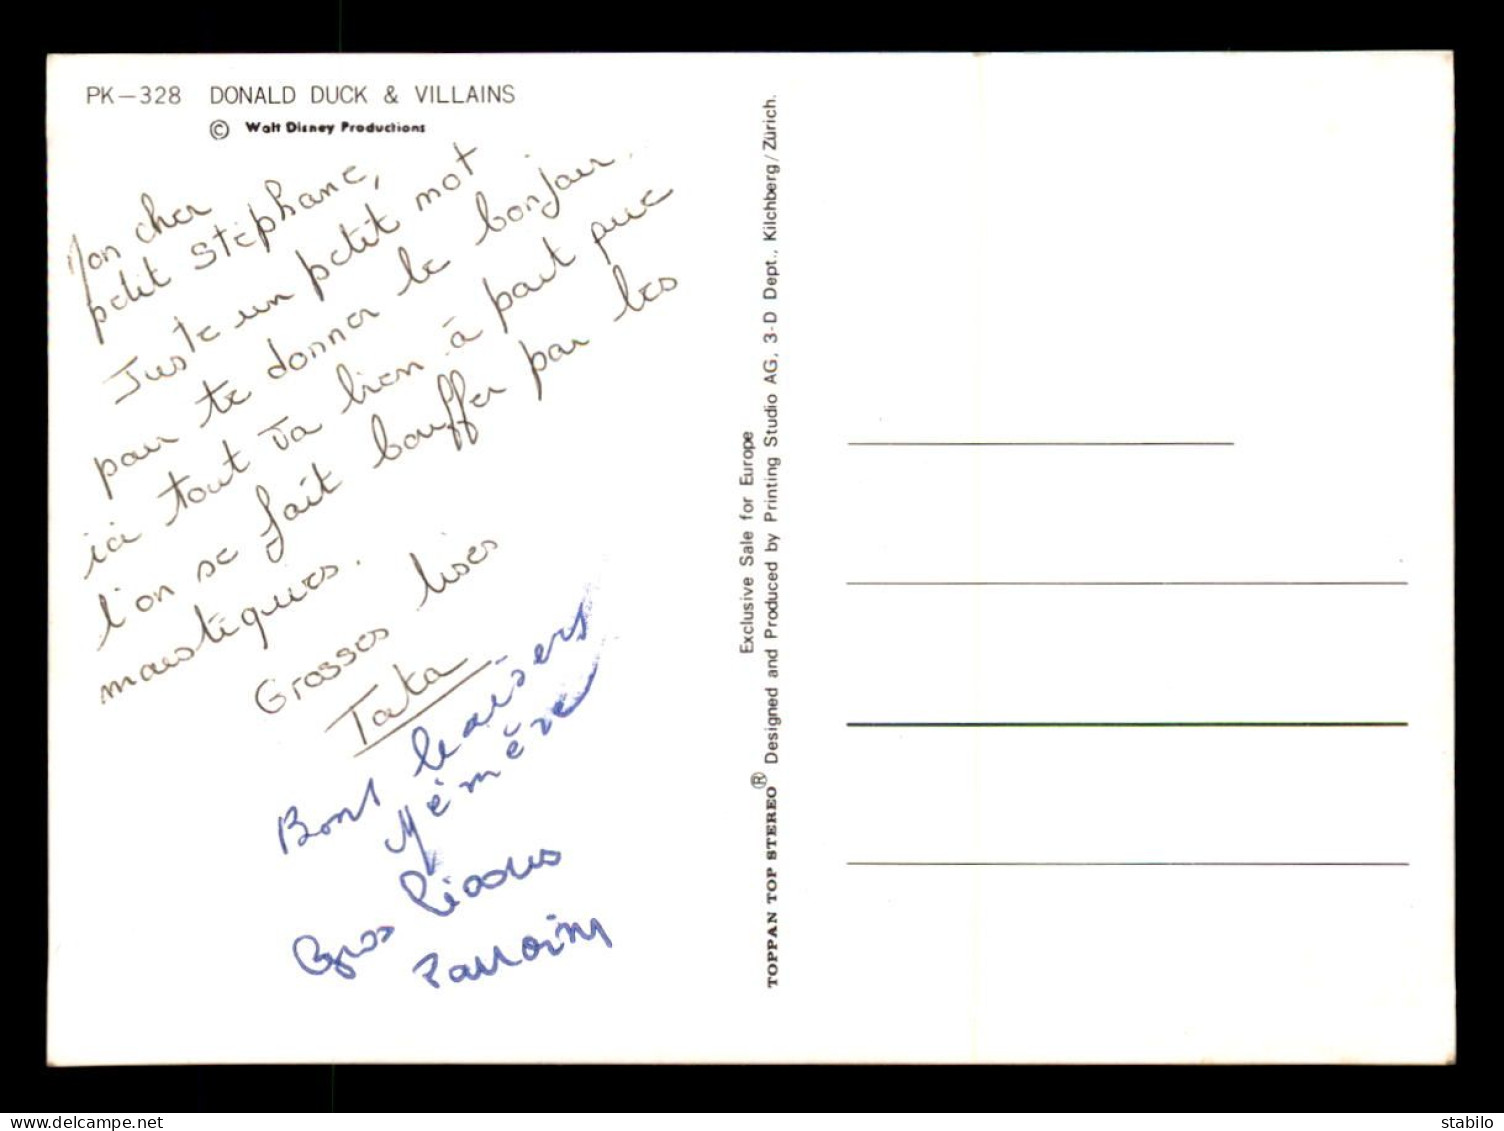 PK-328 DONALD DUCK & VILLAINS
© Walt Disney Productions
Mon cher
petit Stéphane,
Juste un petit mot
pour te donner le bonjour.
ici tout va bien à part que
l'on se fait bouffer par les
moustiques.
Grosses bises
Tata
Bons baisers
Mémère
Gros bisous
Parrain
Exclusive Sale for Europe
TOPPAN TOP STEREO® Designed and Produced by Printing Studio AG, 3-D Dept., Kilchberg/Zürich.
delcampe.net
stabilo